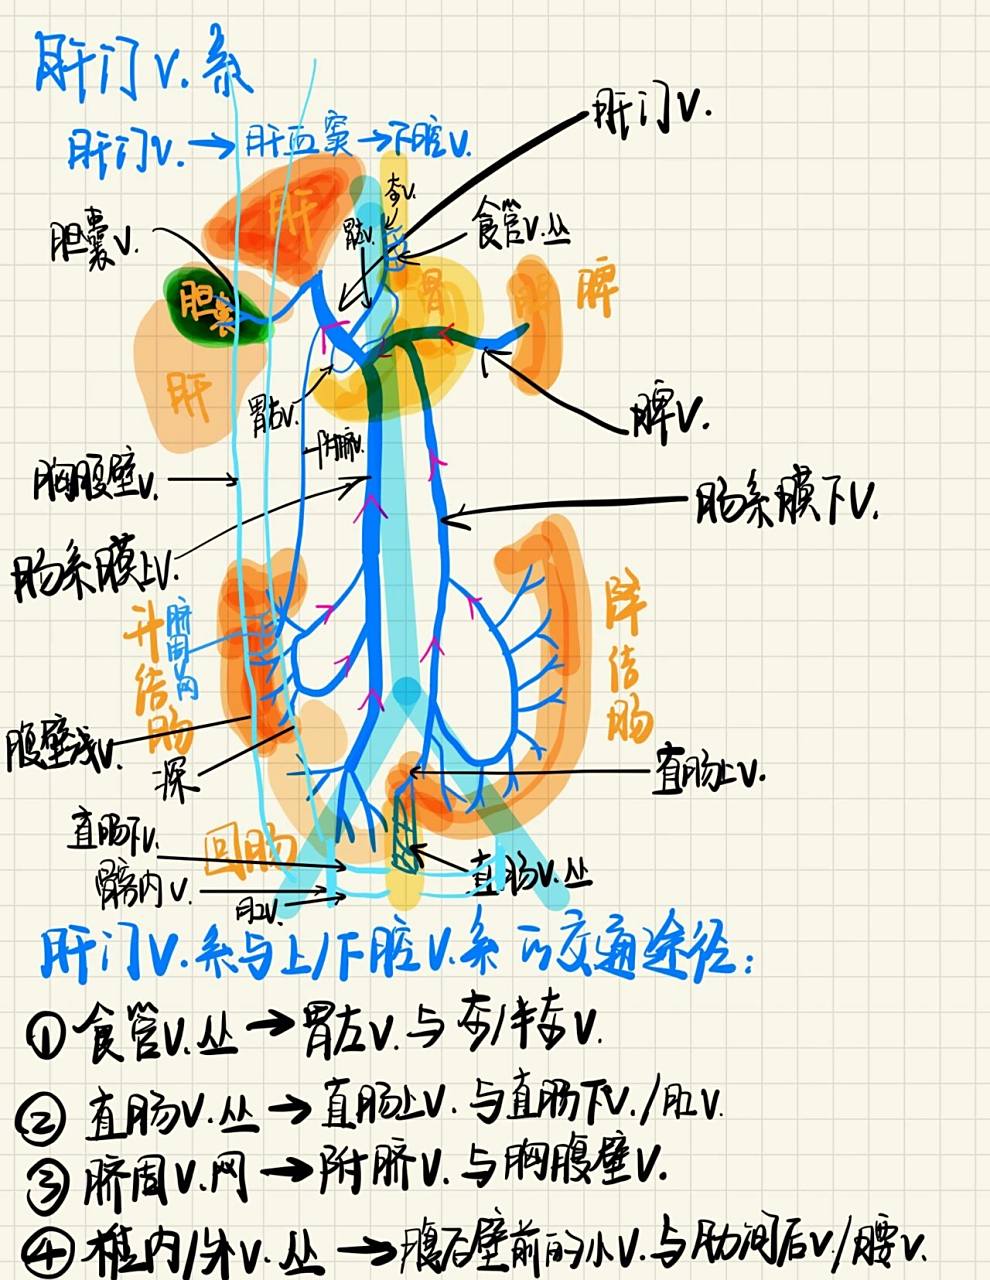 肝门V.系
肝门V.→肝血窦→下腔V.
肝门V.
奇V.
食管V.丛
胃左V.
胆囊V.
肝
胆囊
胃
脾
肝
脾V.
胃右V.
附脐V.
胸腹壁V.
肠系膜下V.
肠系膜上V.
升结肠
脐周V.网
降结肠
腹壁浅V.
深
直肠上V.
直肠下V.
回肠
直肠V.丛
髂内V.
肛V.
肝门V.系与上/下腔V.系的交通途径:
①食管V.丛→胃左V.与奇/半奇V.
②直肠V.丛→直肠上V.与直肠下V./肛V.
③脐周V.网→附脐V.与胸腹壁V.
④椎内/外V.丛→腹后壁前的小V.与肋间后V./腰V.